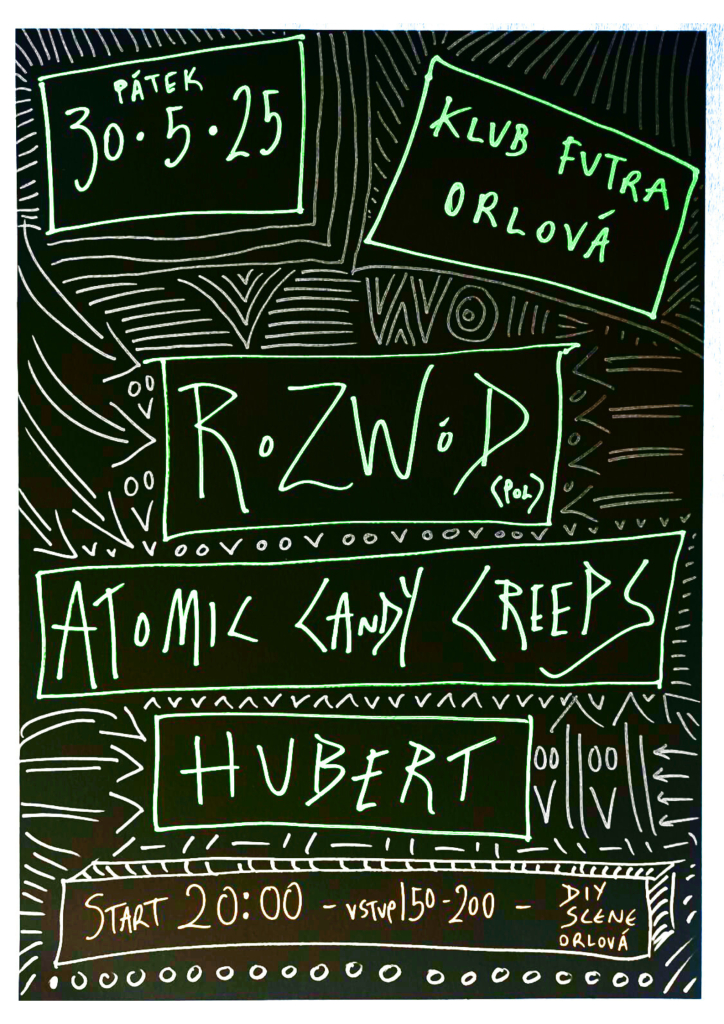 PÁTEK
30.5.25
KLUB FUTRA
ORLOVÁ
RoZWóD
(POL)
ATOMIC CANDY CREEPS
HUBERT
START 20:00 - VSTUP 150-200 -
DIY
SCENE
ORLOVÁ